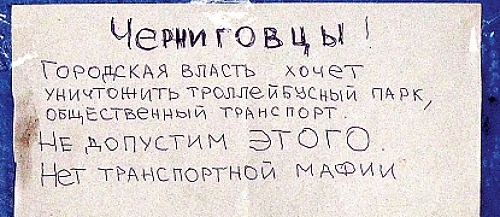 Черниговцы!
Городская власть хочет
уничтожить троллейбусный парк,
общественный транспорт.
Не допустим ЭТОГО.
Нет транспортной мафии